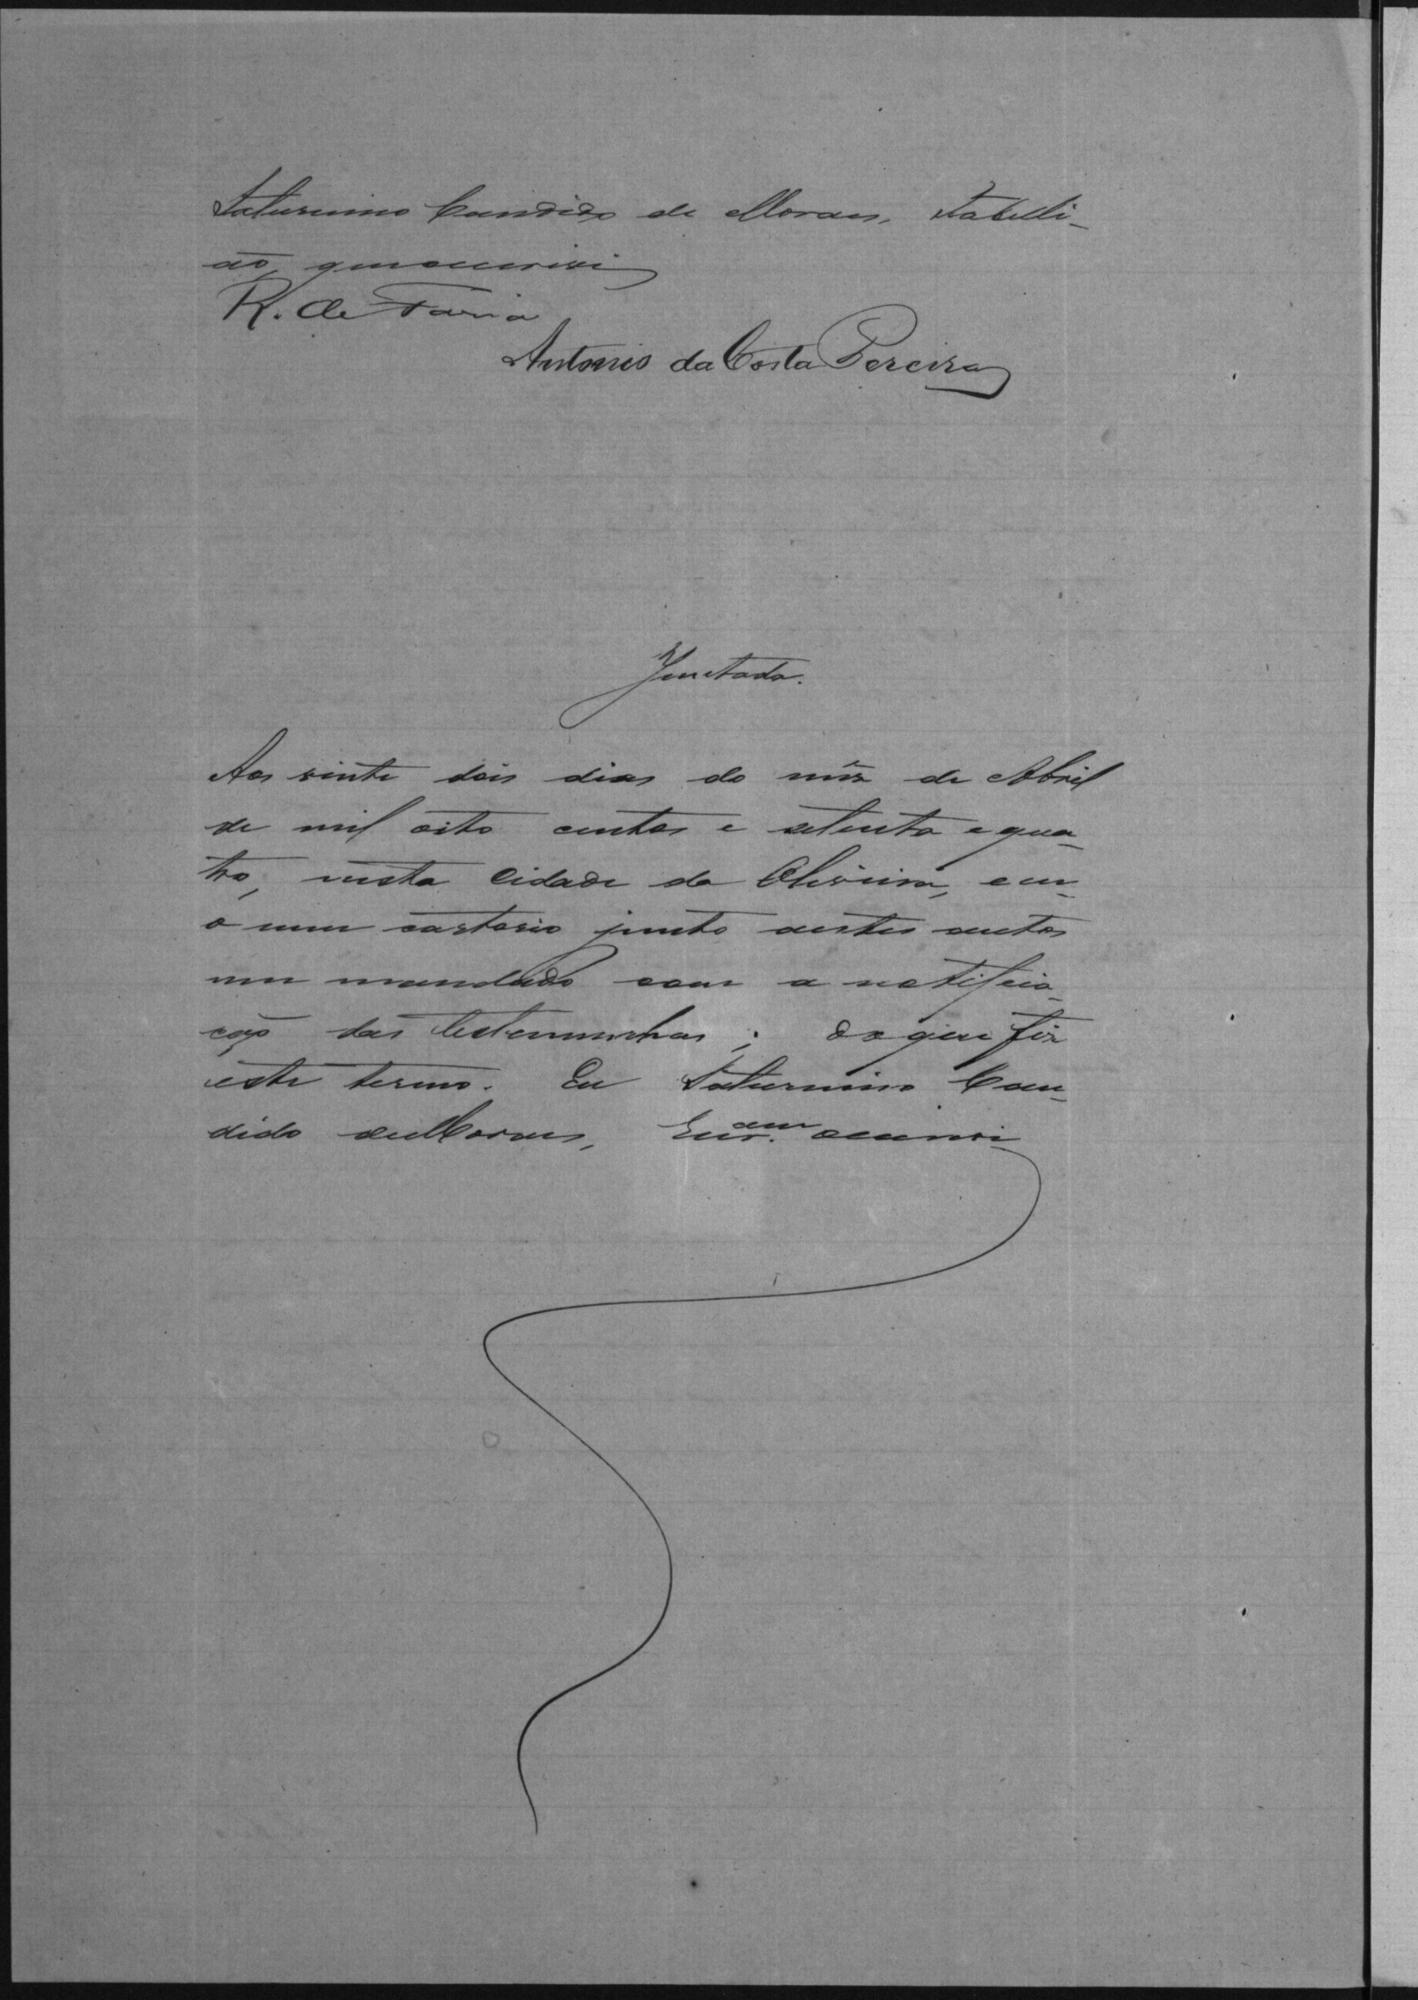 Saturnino Candido de Moraes, Tabelli-
ão, que o escrivi
R. de Faria
Antonio da Costa Pereira
Junctada.
Aos vinte dois dias do mês de Abril
de mil oito centos e setenta e qua-
tro, nesta Cidade da Oliveira, em
o meu cartorio junto a estes autos
um mandado com a notifica-
ção das testemunhas; do que fiz
este termo. Eu Saturnino Can-
dido de Moraes, Escr.am o escrivi